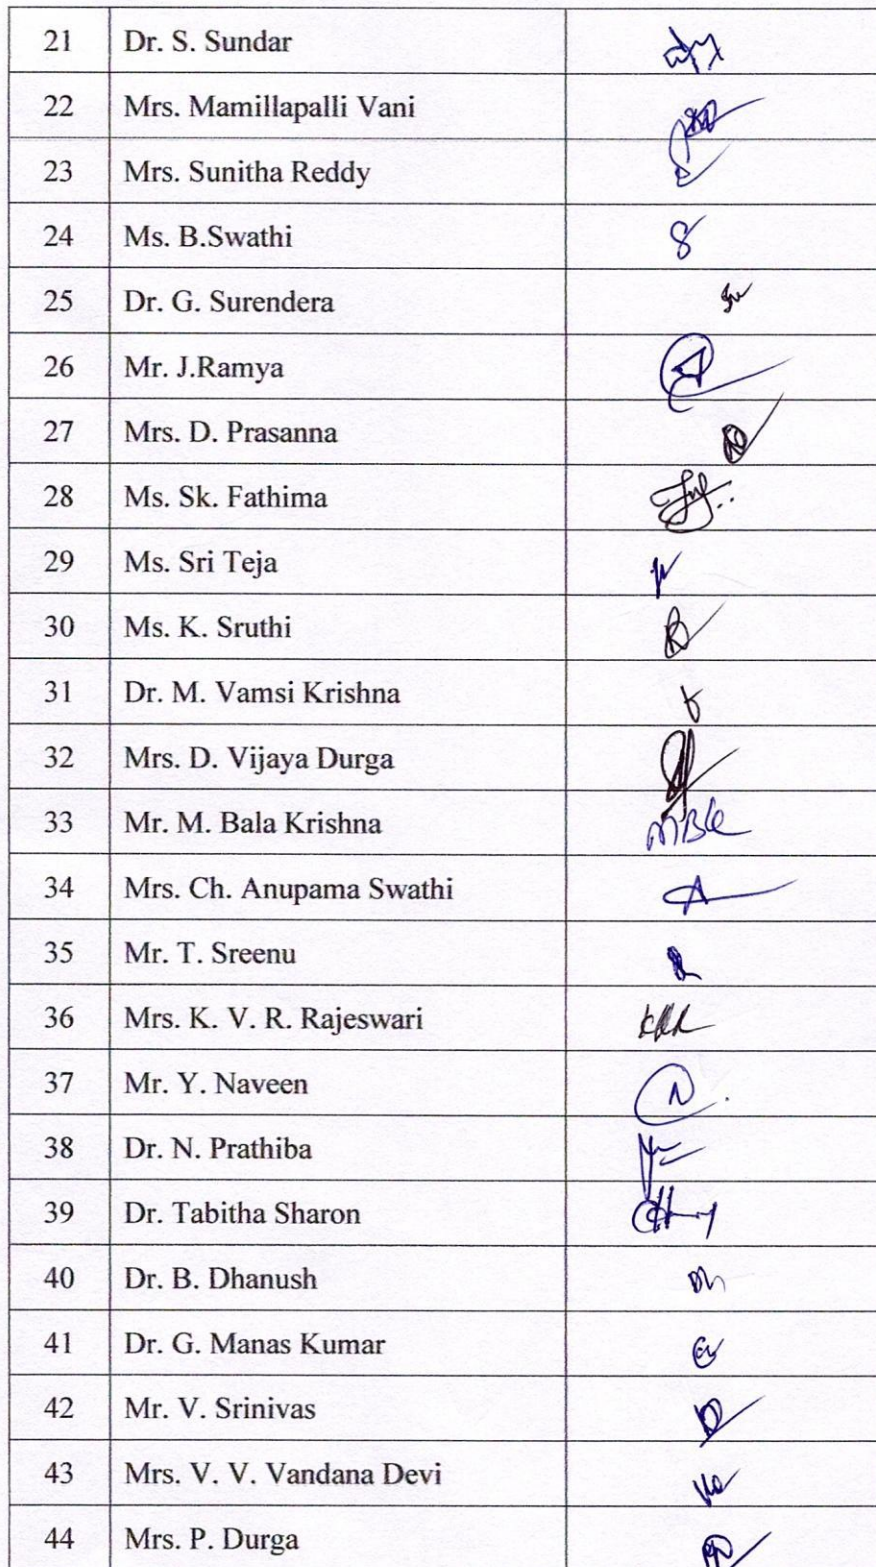 21 Dr. S. Sundar
22 Mrs. Mamillapalli Vani
23 Mrs. Sunitha Reddy
24 Ms. B.Swathi
25 Dr. G. Surendera
26 Mr. J.Ramya
27 Mrs. D. Prasanna
28 Ms. Sk. Fathima
29 Ms. Sri Teja
30 Ms. K. Sruthi
31 Dr. M. Vamsi Krishna
32 Mrs. D. Vijaya Durga
33 Mr. M. Bala Krishna
34 Mrs. Ch. Anupama Swathi
35 Mr. T. Sreenu
36 Mrs. K. V. R. Rajeswari
37 Mr. Y. Naveen
38 Dr. N. Prathiba
39 Dr. Tabitha Sharon
40 Dr. B. Dhanush
41 Dr. G. Manas Kumar
42 Mr. V. Srinivas
43 Mrs. V. V. Vandana Devi
44 Mrs. P. Durga